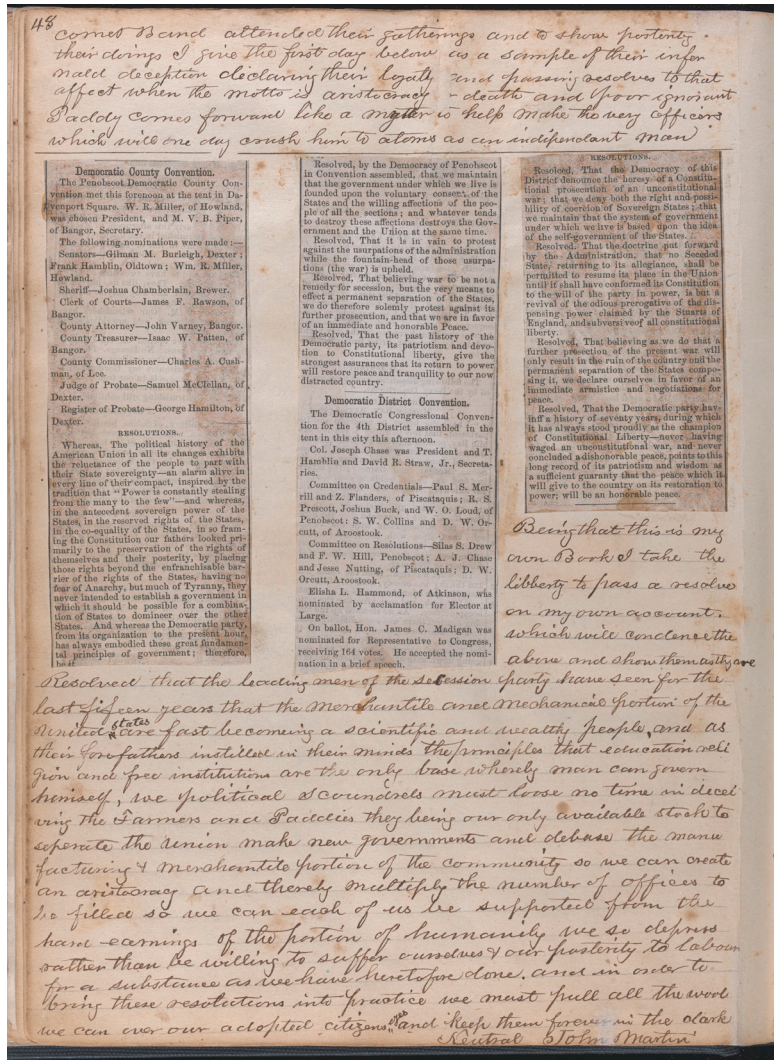 48
cornet Band attended their gatherings and to show posterity
their doings I give the first day below as a sample of their infer
nald deception declaring their loyalty and passing resolves to that
affect when the motto is aristocracy or death and poor ignorant
Paddy comes forward like a to help make the very officers
which will one day crush him to atoms as an indipendant man
Democratic County Convention.
The Penobscot Democratic County Con-
vention met this forenoon at the tent in Da-
venport Square. W. R. Miller, of Howland,
was chosen President, and M. V. B. Piper,
of Bangor, Secretary.
The following nominations were made:—
Senators—Gilman M. Burleigh, Dexter;
Frank Hamblin, Oldtown; Wm. R. Miller,
Howland.
Sheriff—Joshua Chamberlain, Brewer.
Clerk of Courts—James F. Rawson, of
Bangor.
County Attorney—John Varney, Bangor.
County Treasurer—Isaac W. Patten, of
Bangor.
County Commissioner—Charles A. Cush-
man, of Lee.
Judge of Probate—Samuel McClellan, of
Dexter.
Register of Probate—George Hamilton, of
Dexter.
RESOLUTIONS.
Whereas, The political history of the
American Union in all its changes exhibits
the reluctance of the people to part with
their State sovereignty—an alarm alive in
every line of their compact, inspired by the
tradition that "Power is constantly stealing
from the many to the few"—and whereas,
in the antecedent sovereign power of the
States, in the reserved rights of the States,
in the co-equality of the States, in so fram-
ing the Constitution our fathers looked pri-
marily to the preservation of the rights of
themselves and their posterity, by placing
those rights beyond the enfranchisable bar-
rier of the rights of the States, having no
fear of Anarchy, but much of Tyranny, they
never intended to establish a government in
which it should be possible for a combina-
tion of States to domineer over the other
States. And whereas the Democratic party,
from its organization to the present hour,
has always embodied these great fundamen-
tal principles of government; therefore,
be it
Resolved, by the Democracy of Penobscot
in Convention assembled, that we maintain
that the government under which we live is
founded upon the voluntary consent, of the
States and the willing affections of the peo-
ple of all the sections; and whatever tends
to destroy these affections destroys the Gov-
ernment and the Union at the same time.
Resolved, That it is in vain to protest
against the usurpations of the administration
while the fountain-head of those usurpa-
tions (the war) is upheld.
Resolved, That believing war to be not a
remedy for secession, but the very means to
effect a permanent separation of the States,
we do therefore solemnly protest against its
further prosecution, and that we are in favor
of an immediate and honorable Peace.
Resolved, That the past history of the
Democratic party, its patriotism and devo-
tion to Constitutional liberty, give the
strongest assurances that its return to power
will restore peace and tranquility to our now
distracted country.
Democratic District Convention.
The Democratic Congressional Conven-
tion for the 4th District assembled in the
tent in this city this afternoon.
Col. Joseph Chase was President and T.
Hamblin and David R. Straw, Jr., Secreta-
ries.
Committee on Credentials—Paul S. Mer-
rill and Z. Flanders, of Piscataquis; R. S.
Prescott, Joshua Buck, and W. O. Loud, of
Penobscot: S. W. Collins and D. W. Or-
cutt, of Aroostook.
Committee on Resolutions—Silas S. Drew
and F. W. Hill, Penobscot; A. J. Chase
and Jesse Nutting, of Piscataquis; D. W.
Orcutt, Aroostook.
Elisha L. Hammond, of Atkinson, was
nominated by acclamation for Elector at
Large.
On ballot, Hon. James C. Madigan was
nominated for Representative to Congress,
receiving 164 votes. He accepted the nomi-
nation in a brief speech.
RESOLUTIONS.
Resolved, That the Democracy of this
District denounce the heresy of a Constitu-
tional prosecution of an unconstitutional
war; that we deny both the right and possi-
bility of coercion of Sovereign States; that
we maintain that the system of government
under which we live is based upon the idea
of the self-government of the States.
Resolved. That the doctrine put forward
by the Administration, that no Seceded
State, returning to its allegiance, shall be
permitted to resume its place in the Union
until it shall have conformed its Constitution
to the will of the party in power, is but a
revival of the odious prerogative of the dis-
pensing power claimed by the Stuarts of
England, and subversive of all constitutional
liberty.
Resolved, That believing as we do that a
further prosecution of the present war will
only result in the ruin of the country and the
permanent separation of the States compo-
sing it, we declare ourselves in favor of an
immediate armistice and negotiations for
peace.
Resolved, That the Democratic party hav-
ing a history of seventy years, during which
it has always stood proudly as the champion
of Constitutional Liberty—never having
waged an unconstitutional war, and never
concluded a dishonorable peace, points to this
long record of its patriotism and wisdom as
a sufficient guaranty that the peace which it
will give to the country on its restoration to
power; will be an honorable peace.
Being that this is my
own Book I take the
libberty to pass a resolve
on my own account.
which will condence the
above and show them as they are
Resolved that the leading men of the secession party have seen for the
last fifeen years that the merchantile and mechanical portion of the
United States are fast becomeing a scientific and wealthy people, and as
their forefathers instilled in their minds the principles that education reli
gion and free institutions are the only base whereby man can govern
himself, we political scoundrels must loose no time in decei
ving the Farmers and Paddies they being our only available stock to
seperate the union make new governments and debase the manu
facturing & merchantile portion of the community so we can create
an aristocracy and thereby multiply the number of offices to
be filled so we can each of us be supported from the
hard earnings of the portion of humanity we so depress
rather than be willing to suffer ourselves & our posterity to labour
for a substance as we have heretofore done. and in order to
bring these resolutions into practice we must pull all the wool
we can over our adopted citizens eyes and keep them forever in the dark
Neutral John Martin